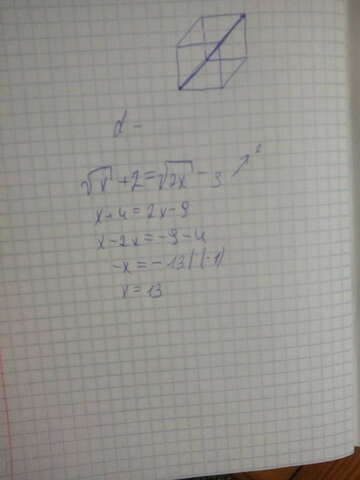 d -
√x + 2 = √2x - 9 /²
x + 4 = 2x - 9
x - 2x = -9 - 4
-x = -13 / (-1)
x = 13